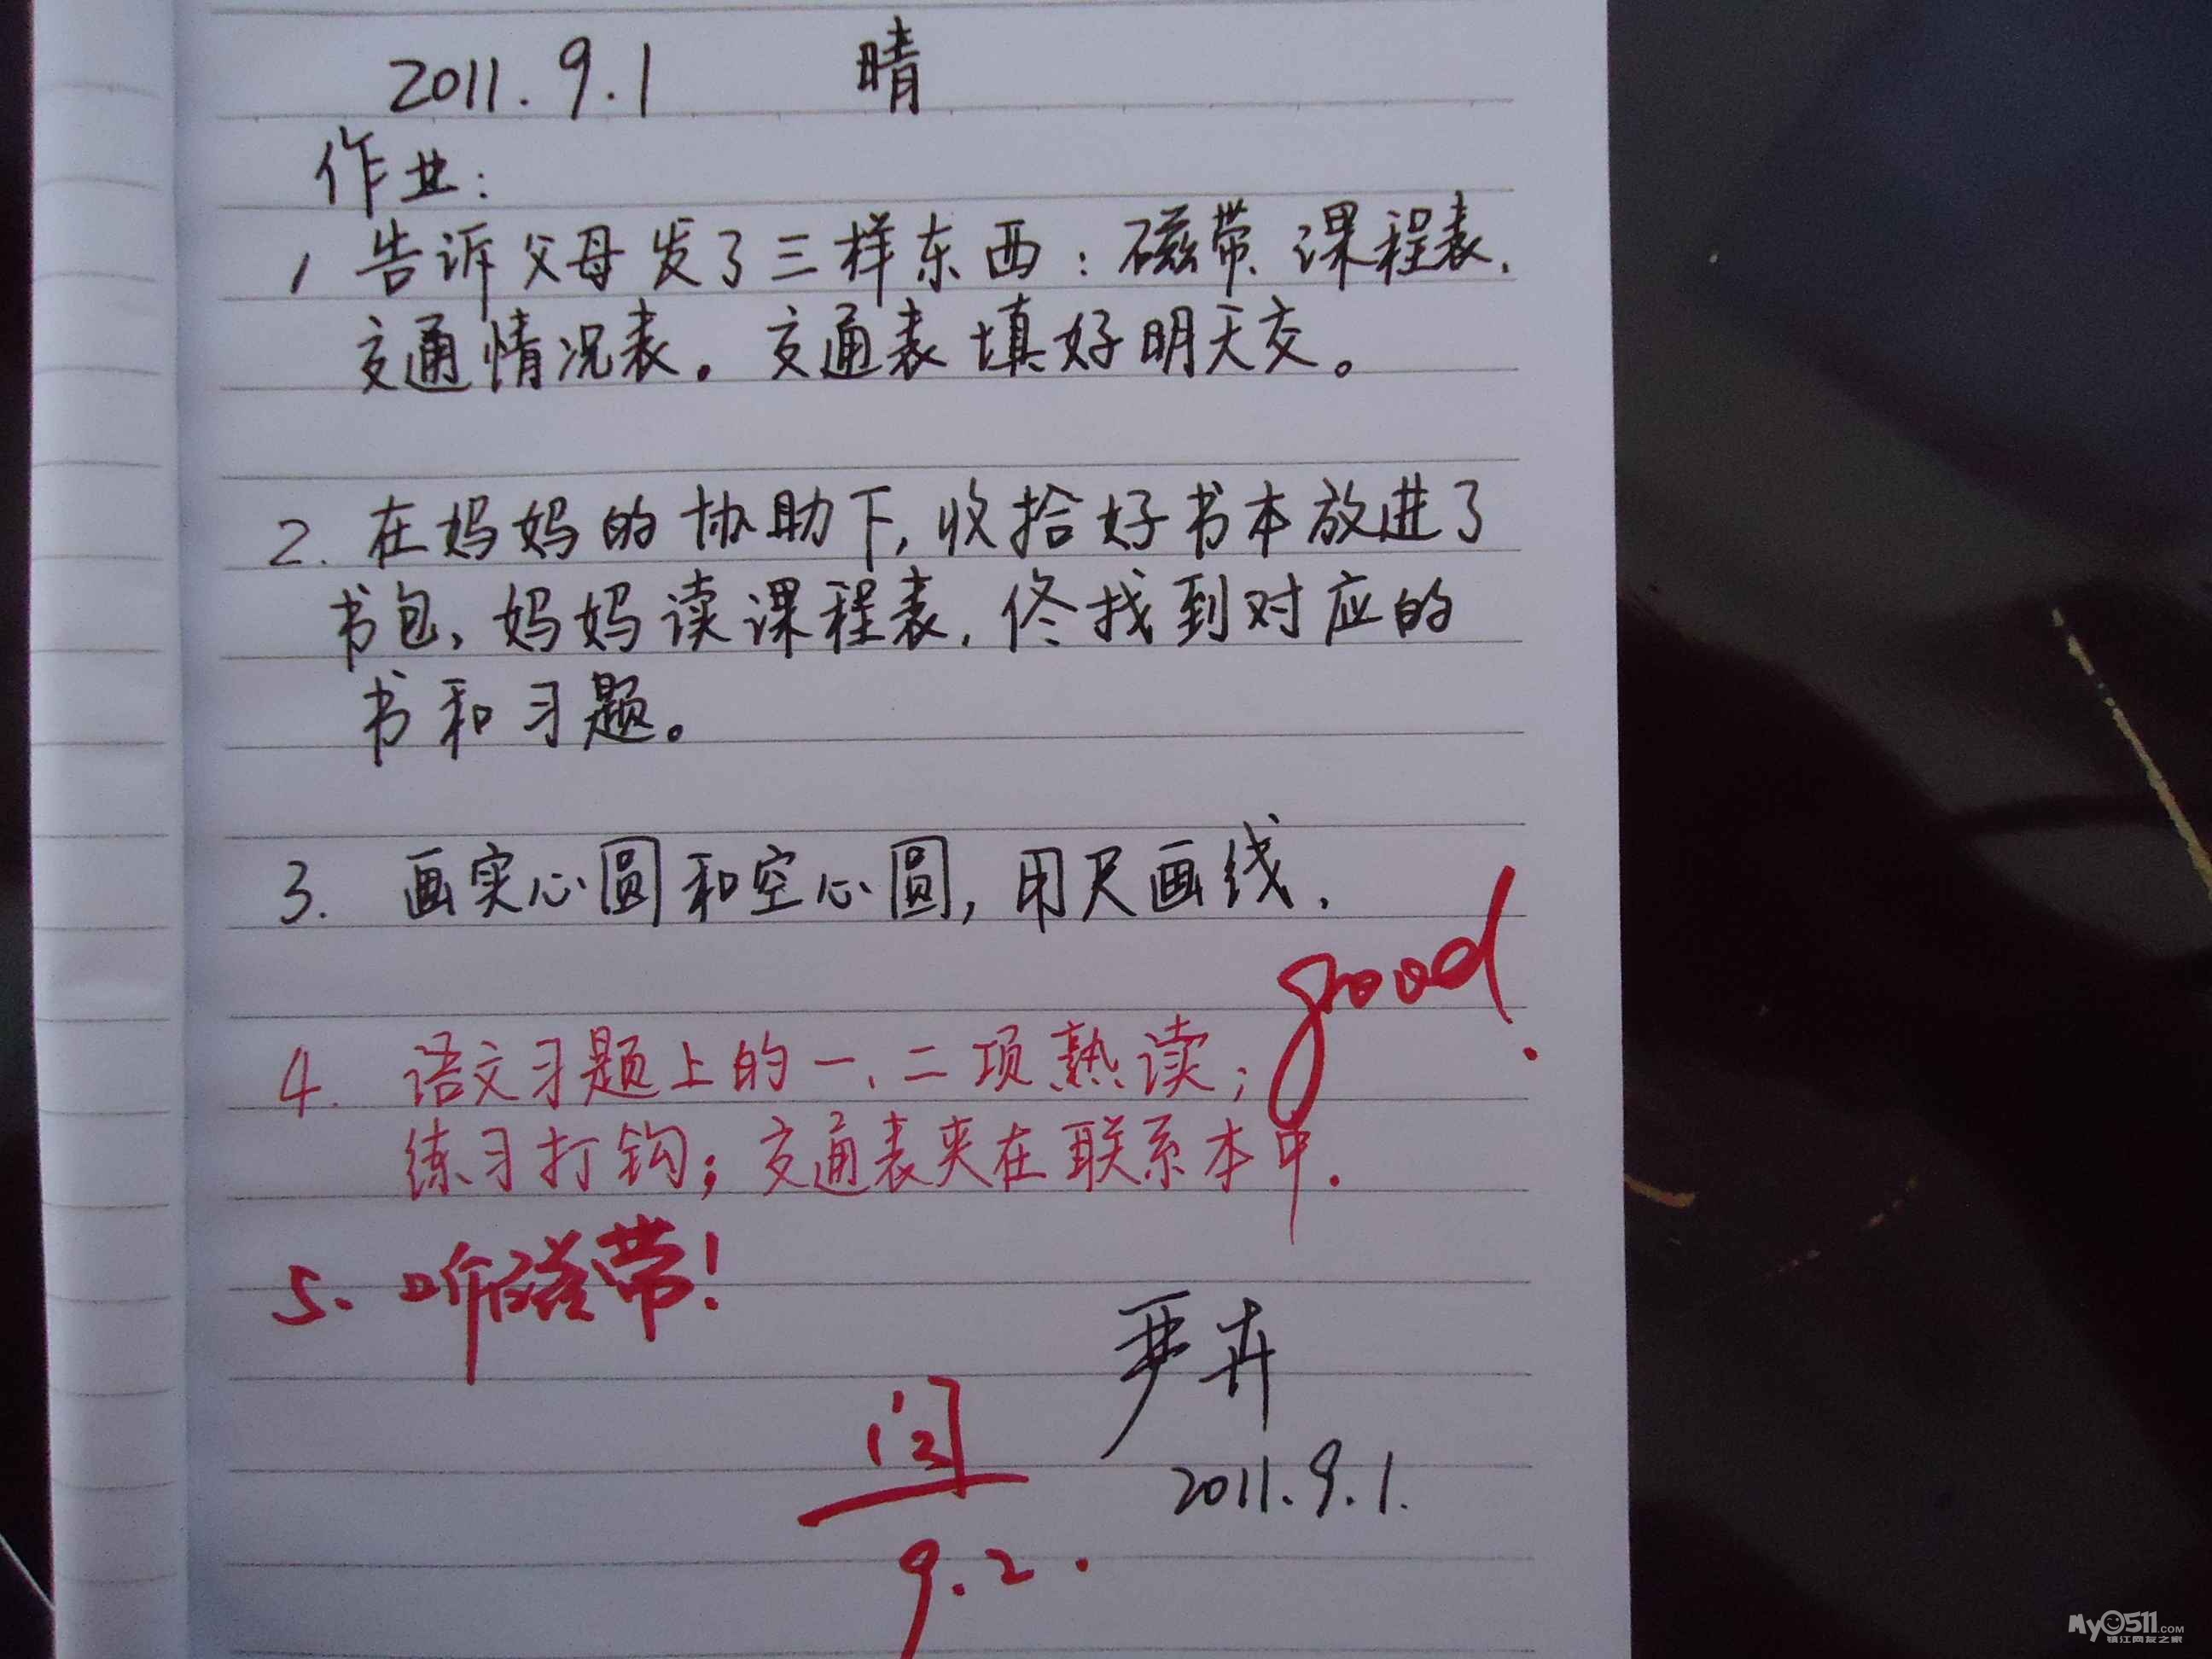 2011.9.1 晴
作业:
1 告诉父母发了三样东西:磁带、课程表、
交通情况表。交通表填好明天交。
2. 在妈妈的协助下,收拾好书本放进了
书包,妈妈读课程表,佟找到对应的
书和习题。
3. 画实心圆和空心圆,用尺画线.
good.
4. 语文习题上的一、二项熟读;
练习打钩;交通表夹在联系本中.
5. 听磁带!
严卉
2011.9.1.
闫
9.2.
My0511.COM
镇江网友之家